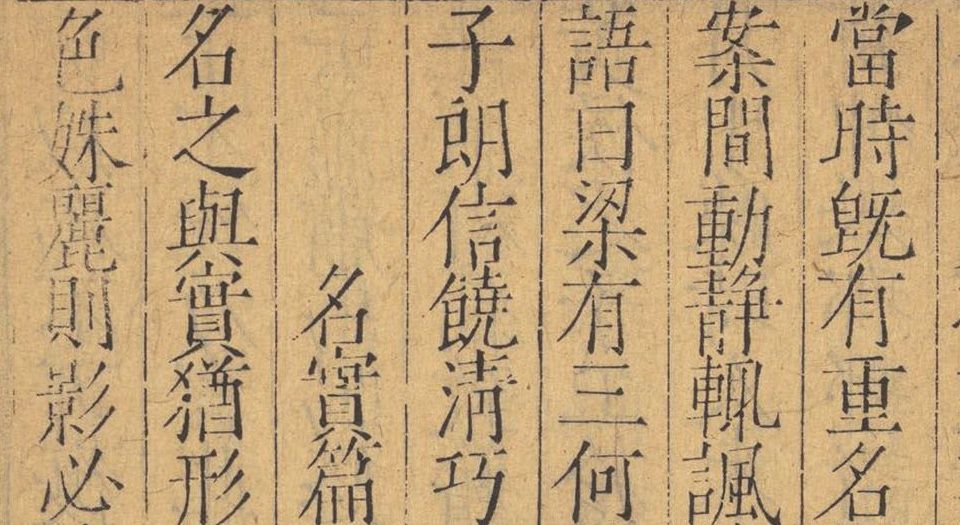 當時旣有重名
案間動靜輒諷
語曰梁有三何
子朗信饒清巧
名實篇
名之與實猶形
色姝麗則影必